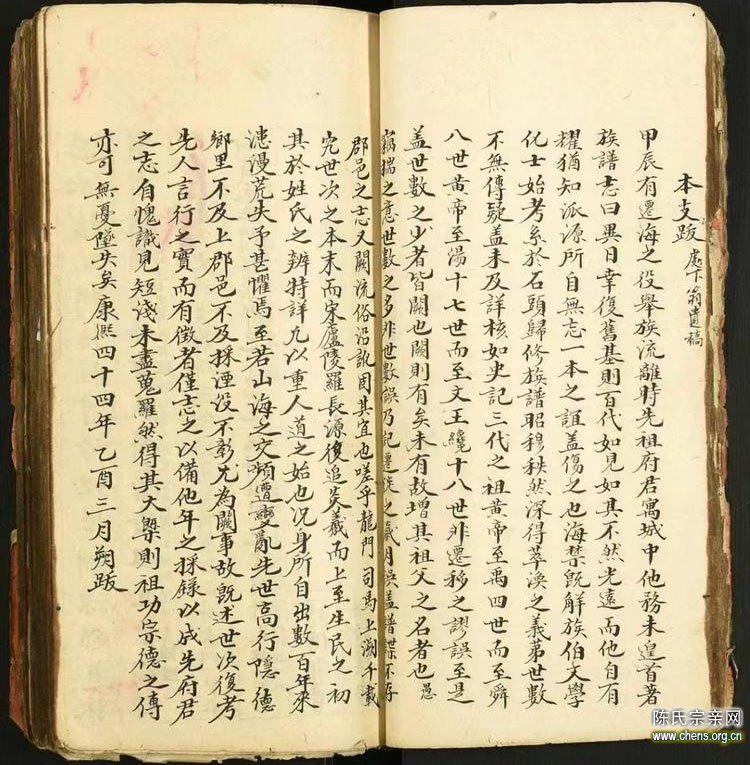 本支跋 處下翁遺稿
甲辰有遷海之役舉族流離時先祖府君寓城中他務未皇首著
族譜志曰異日幸復舊基則百代如見如其不然光遠而他自有
耀猶知派源所自無忘一本之誼蓋傷之也海禁既解族伯文學
化士始考系於石頭歸修族譜昭穆秩然深得萃渙之義苐世數
不無傳疑盖未及詳核如史記三代之祖黄帝至禹四世而至舜
八世黄帝至湯十七世而至文王纔十八世非遷移之謬誤至是
盖世數之少者皆闕也闕則有矣未有故增其祖父之名者也愚
竊揣之意世數之多非世數誤乃記遷徙之歲月誤盖譜牒不存
郡邑之志又闕流俗沿訛固其宜也嗟乎龍門司馬上溯千載
究世次之本末而宋廬陵羅長源復追炎羲而上至生民之初
其於姓氏之辨特詳凡以重人道之始也况身所自出數百年來
漶漫荒失予甚懼焉至若山海之交頻遭變亂先世高行隱德
鄉里不及上郡邑不及採湮没不彰尤為闕事故既述世次復考
先人言行之實而有徵者僅志之以備他年之採錄以成先府君
之志自愧識見短淺未盡蒐羅然得其大槩則祖功宗德之傳
亦可無憂墜失矣康熙四十四年乙酉三月朔跋
陈氏宗亲网
www.chens.org.cn